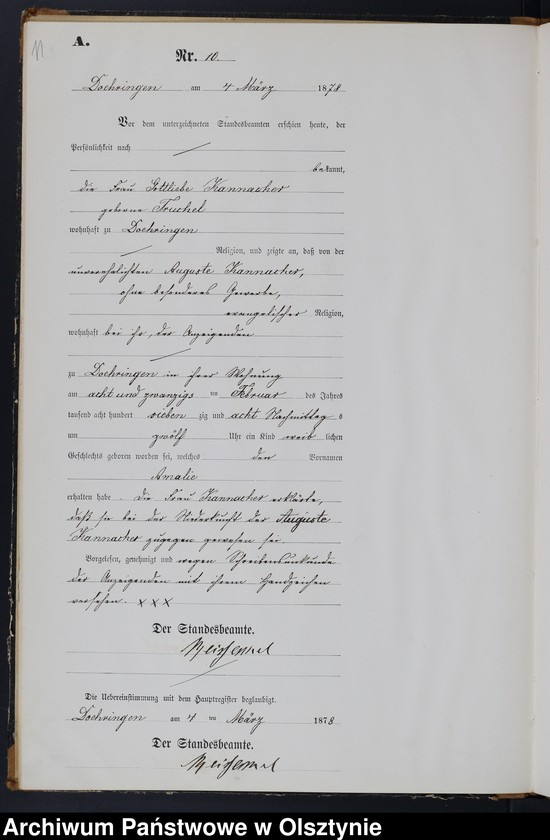 11
A.
Nr. 10.
Doehringen am 4 März 1878
Vor dem unterzeichneten Standesbeamten erschien heute, der
Persönlichkeit nach
bekannt,
die Frau Gottliebe Kannacher
geborne Truchel
wohnhaft zu Doehringen
Religion, und zeigte an, daß von der
unverehelichten Auguste Kannacher,
ohne besonderes Gewerbe,
evangelischer Religion,
wohnhaft bei ihr, der Anzeigenden
zu Doehringen in ihrer Wohnung
am acht und zwanzigs ten Februar des Jahres
tausend acht hundert sieben zig und acht Nachmittag s
um zwölf Uhr ein Kind weib lichen
Geschlechts geboren worden sei, welches den Vornamen
Amalie
erhalten habe. Die Frau Kannacher erklärte,
daß sie bei der Niederkunft der Auguste
Kannacher zugegen gewesen sei.
Vorgelesen, genehmigt und wegen Schreibensunkunde
der Anzeigenden mit ihrem Handzeichen
versehen. x x x
Der Standesbeamte.
Die Uebereinstimmung mit dem Hauptregister beglaubigt.
Doehringen am 4 ten März 1878
Der Standesbeamte.
Archiwum Państwowe w Olsztynie